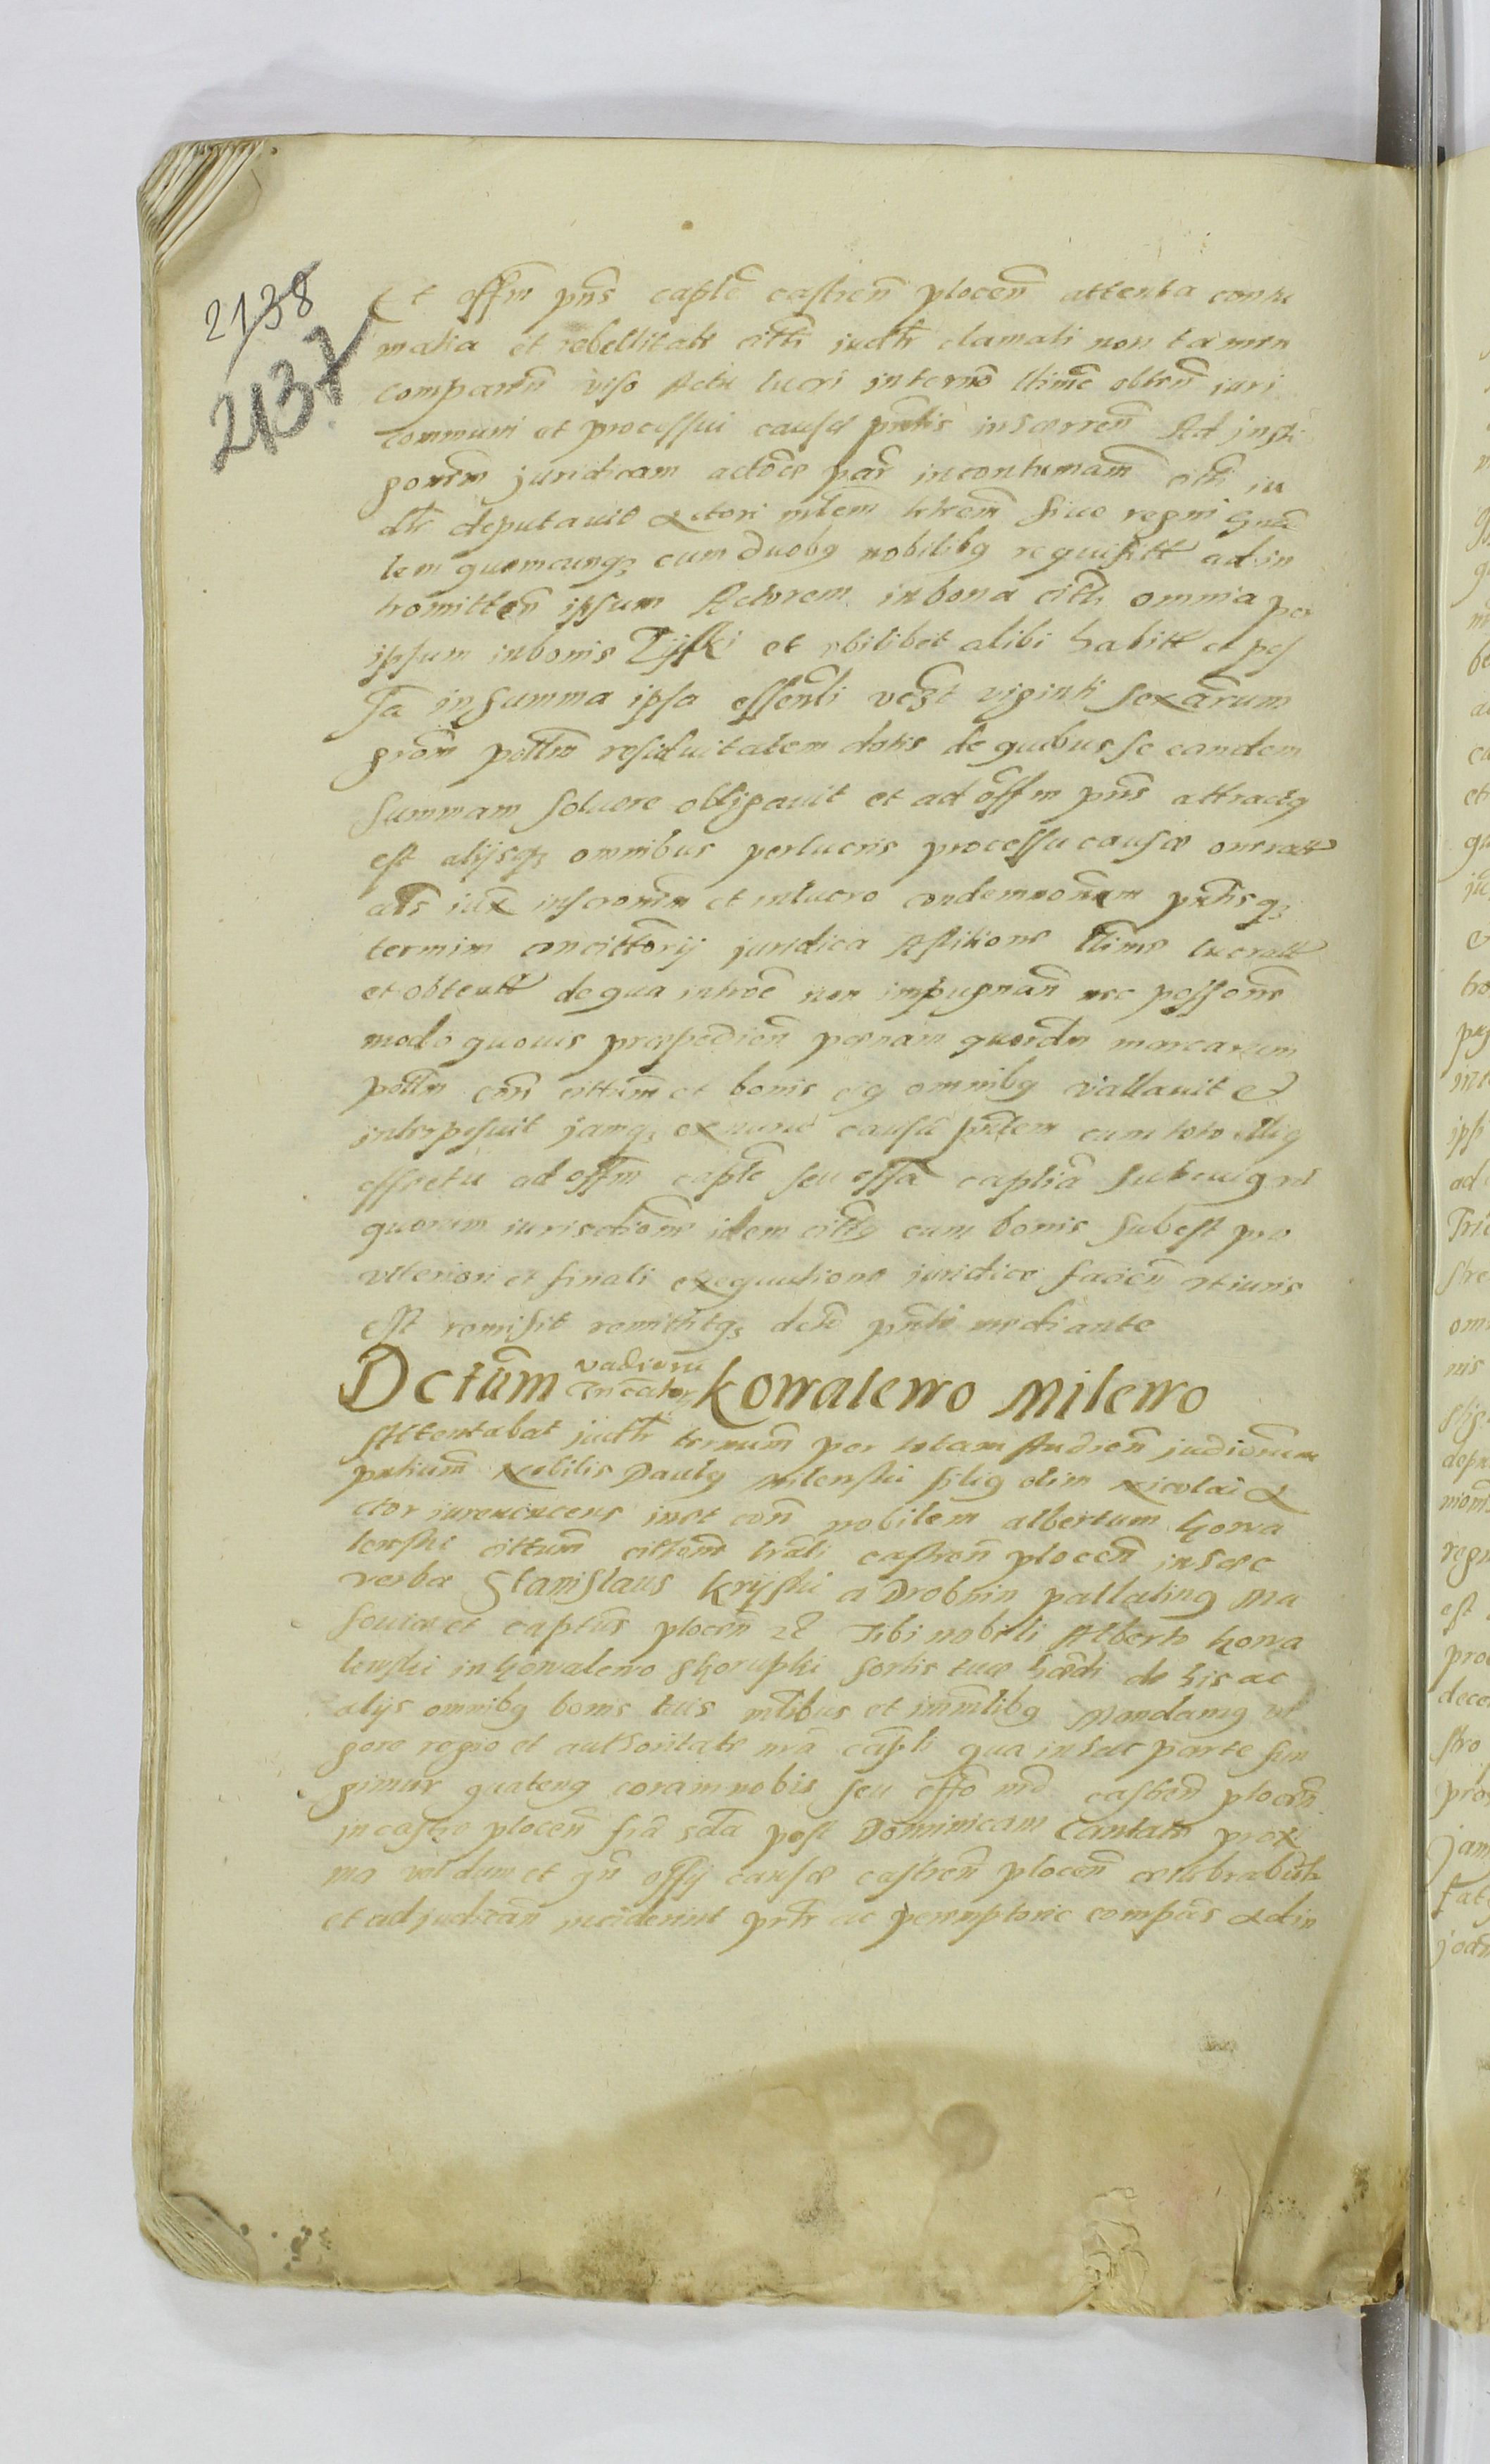 2138
2137
Et offm pns caplē castren plocen attenta contu
matia et rebellitate citti iudtr clamati non tamen
comparen viso Actu lucri in termo ltime obten iuri
communi et processui causæ pntis inhæren Ad insti
gonem juridicam actoræ par in contumam citti iu
dtr deputauit Actori mlem trrem siue regni gnā
lem quemcunq; cum duobq nobilibq requisitt ad in
tromitten ipsum Actorem in bona citti omnia per
ipsum in bonis Tijski et vbilibet alibi habitt et pos
sa in summa ipsa essenli viginti sexarum
gron polln residuitatem dotis de quibus se eandem
summam soluere obligauit et ad offm pns attractq
est alijsq; omnibus perlucris processu causæ oneratt
als iux inscronem et in lucro condemnonem pntisq;
termini concittorij juridica Astitione ltime lucratt
et obtentt de qua introe non impugnan nec possons
modo quouis præpedien pænam quordm marcarum
polln con cittum et bonis eiq omnibq vallauit &
interposuit jamq; ex nunc causā pntem cum toto illiq
effectu ad offm caple seu offa caplia subeuiq vel
quorum iurisdictione idem cittq cum bonis subest pro
vlteriori et finali exequutione juridice facien vt iuris
est remisit remittitq; decto pnti mediante
Dctum vadiorū Kowalewo Milewo
Attentabat judtr termum per totam Audien judiorum
pntium Nobilis Paulq Milewski filiq olim Nicolai A
ctor iureuincens inst con nobilem albertum Kowa
lewski cittum cittone lrali castren plocen in hæc
verba Stanislaus Krijski a Drobnin pallatinq Ma
souiæ et captus plocen 2c Tibi nobili Alberto Kowa
lewski in Kowalewo Skorupki sortis tuæ hædi de his ac
alijs omnibq bonis tuis mlibus et immlibq Mandamq vi
gore regio et authoritate nra capli qua in hac parte fun
gimur quatenq coram nobis seu offo nro castren plocen
in castro plocen fria scda post Dominicam Cantate proxi
ma vel dum et qn offij causæ castren plocen celebrabutr
et ad judican inciderint prtr ac peremptorie compas Ad in